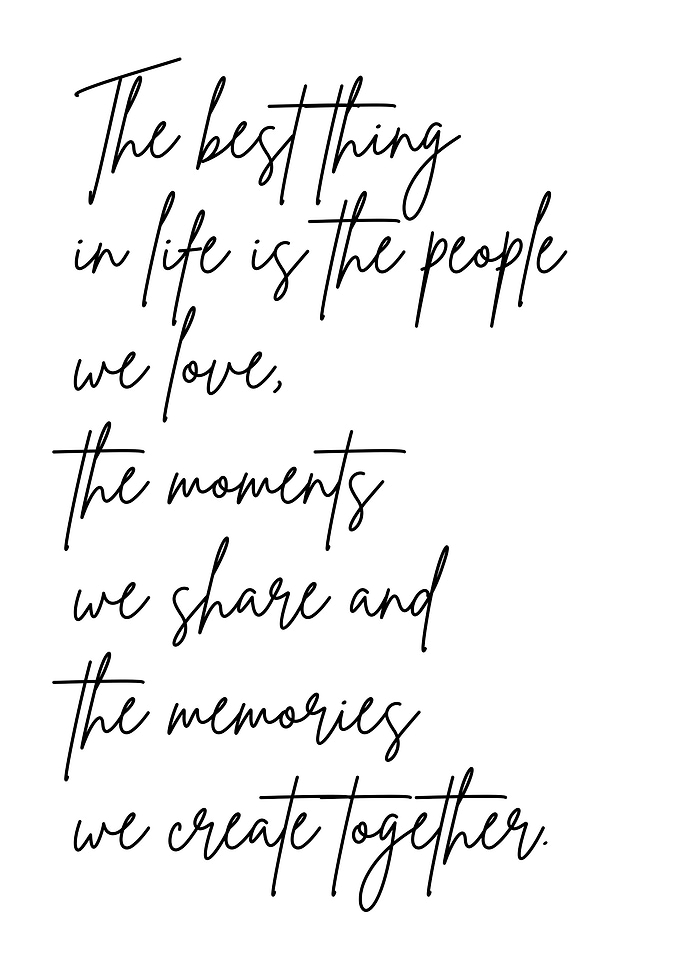 The best thing
in life is the people
we love,
the moments
we share and
the memories
we create together.